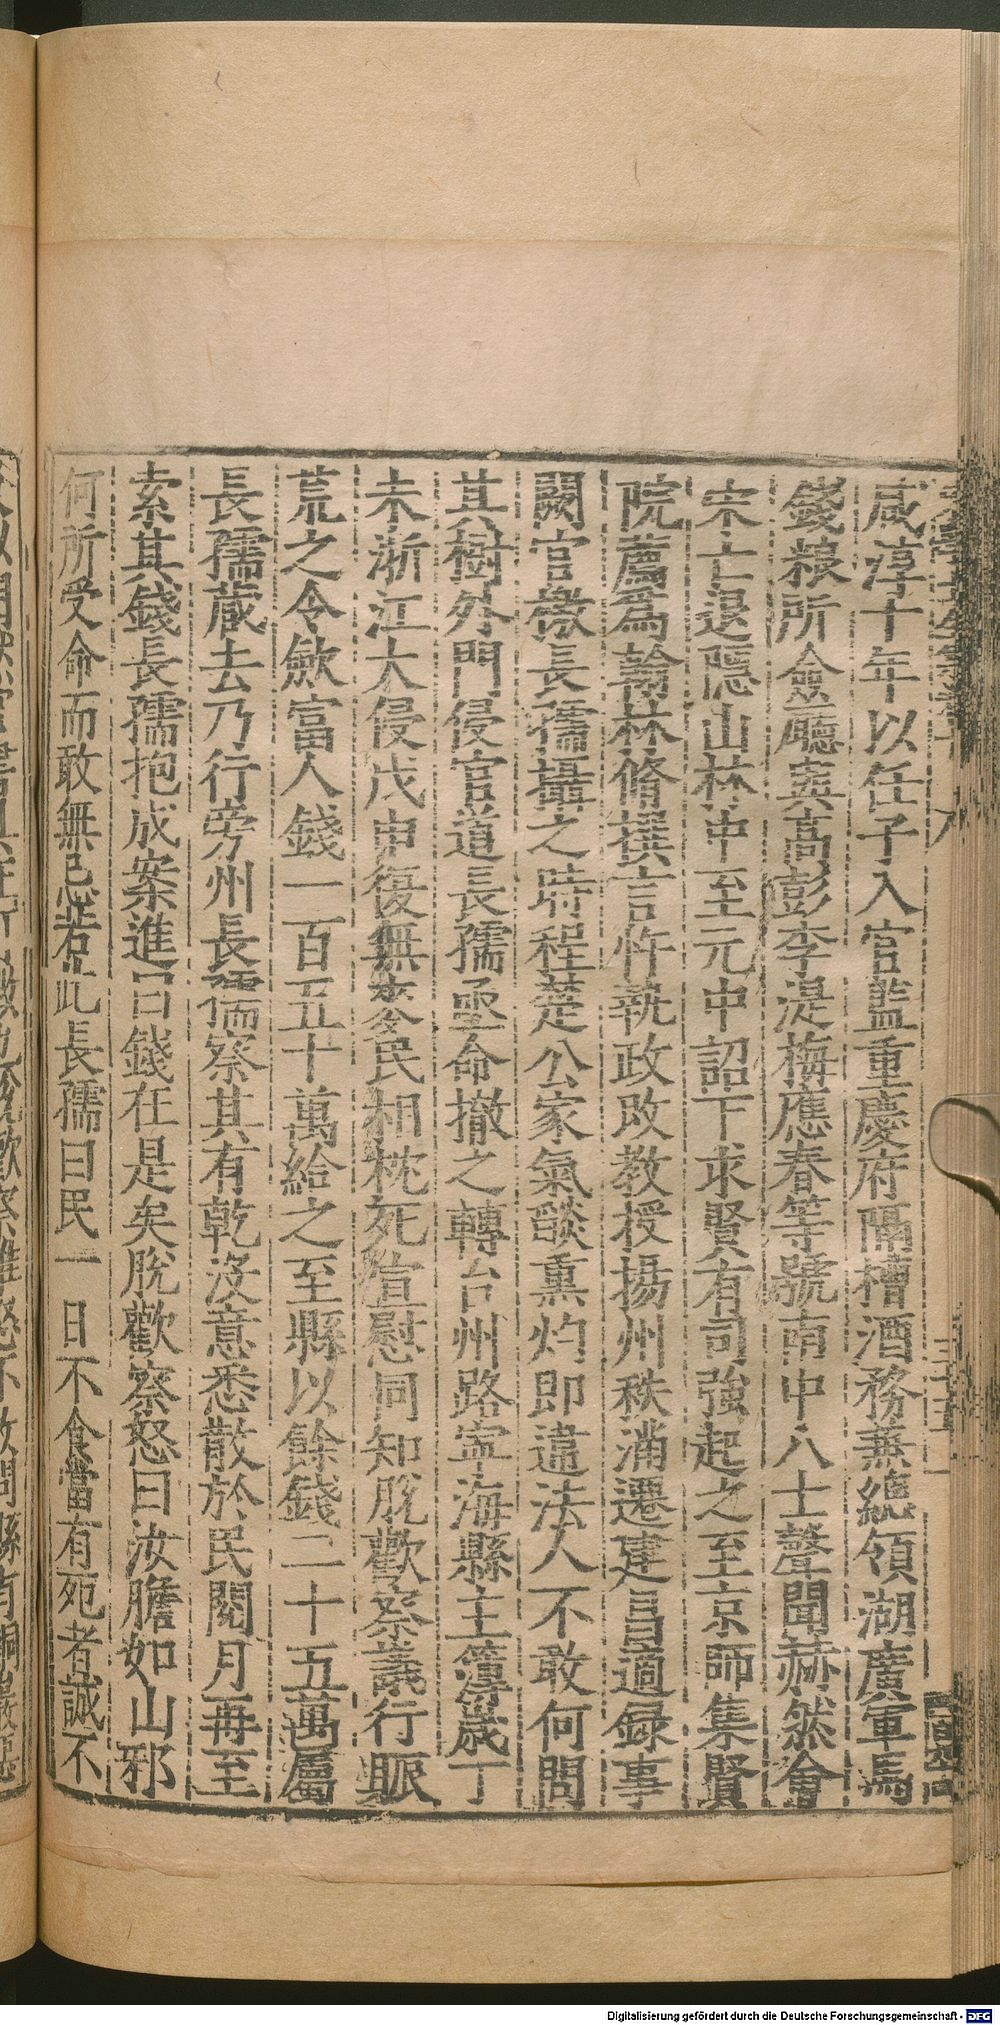 咸淳十年以任子入官監重慶府隔槽酒務兼總領湖廣軍馬
錢粮所僉廳與高彭李湜梅應春等號南中八士聲聞赫然會
宋亡退隱山林中至元中詔下求賢有司強起之至京師集賢
院薦為翰林脩撰言忤執政改教授揚州秩滿遷建昌適録事
闕官檄長孺攝之時程楚公家氣燄熏灼即違法人不敢何問
其樹外門侵官道長孺亟命撤之轉台州路寧海縣主簿歳丁
未浙江大侵戊申復無麥民相枕死宣慰同知脫歡察議行賑
荒之令歛富人錢一百五十萬給之至縣以餘錢二十五萬屬
長孺藏去乃行旁州長孺察其有乾没意悉散於民閱月再至
索其錢長孺抱成案進曰錢在是矣脫歡察怒曰汝膽如山邪
何所受命而敢無忌若此長孺曰民一日不食當有死者誠不
Digitalisierung gefördert durch die Deutsche Forschungsgemeinschaft - DFG